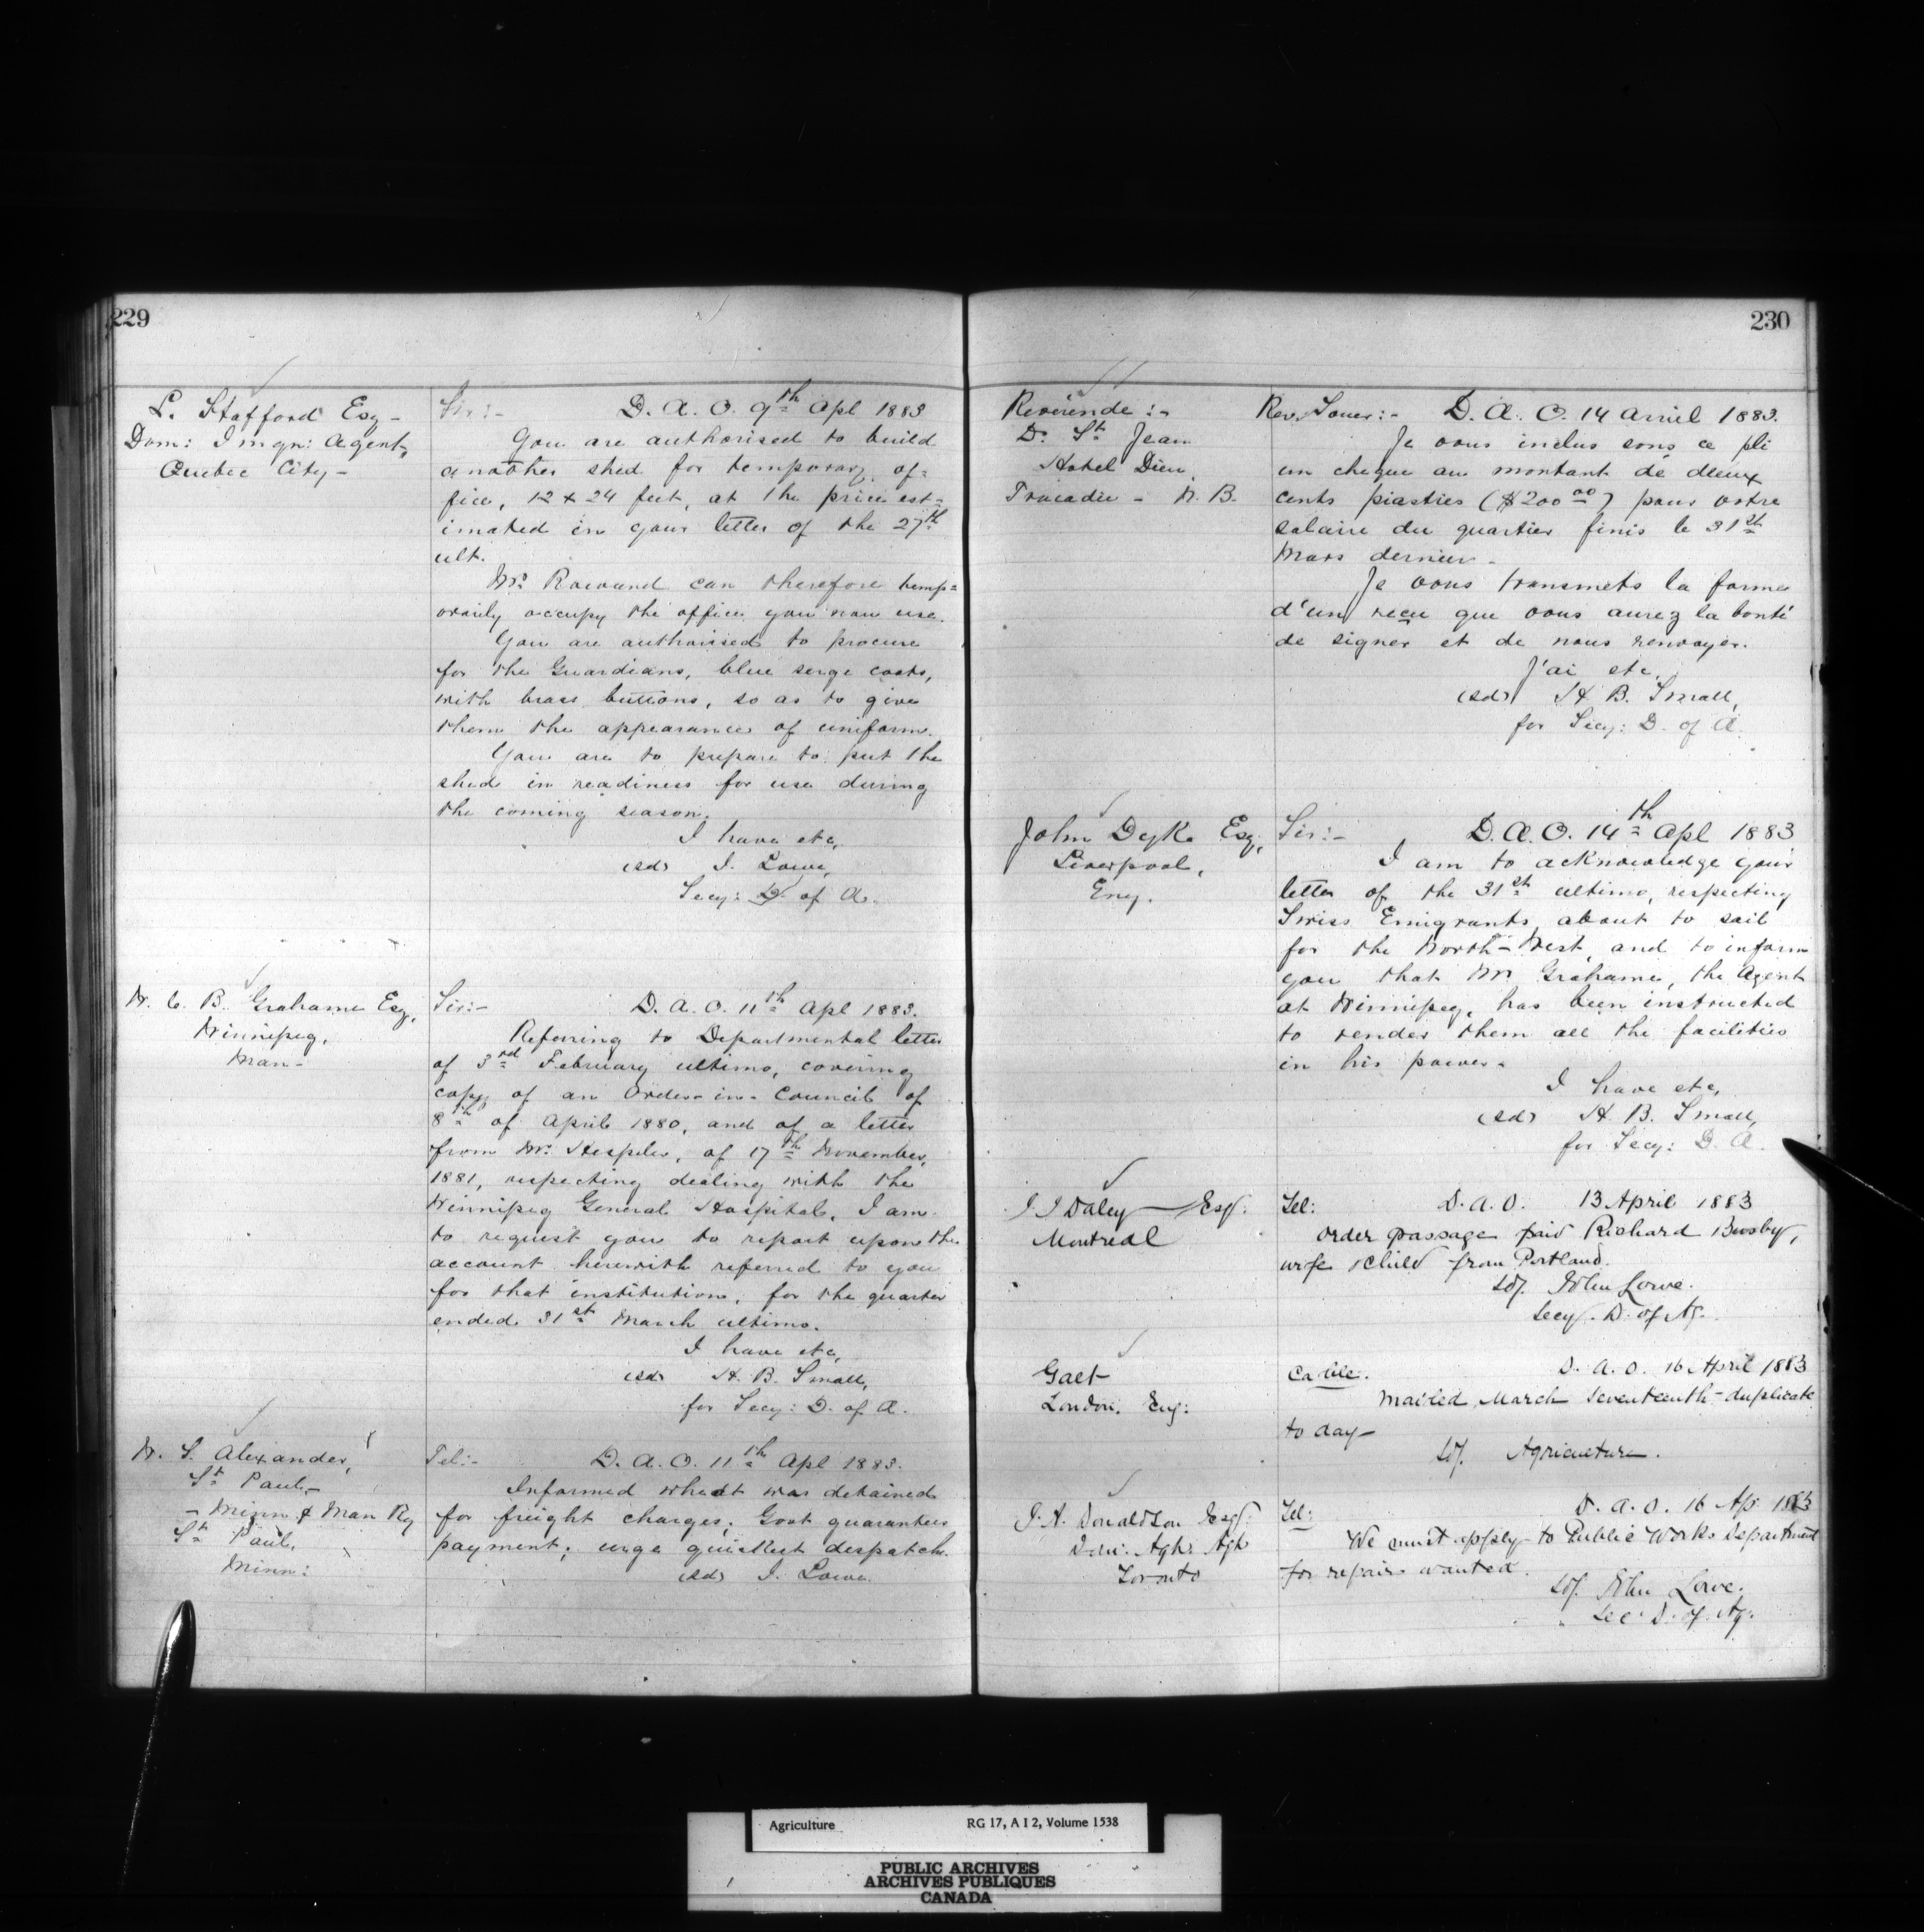 229
L. Stafford Esq -
Dom: Imgn: Agent,
Quebec City -
Sir:- D. A. O. 9th Apl 1883
You are authorised to build
another shed for temporary of=
fice, 12 x 24 feet, at the price est=
imated in your letter of the 27th
ult.
Mr. Rowand can therefore temp=
orarily occupy the office you now use.
You are authorised to procure
for the Guardians, blue serge coats,
with brass buttons, so as to give
them the appearance of uniform.
You are to prepare to put the
shed in readiness for use during
the coming season.
I have etc,
(sd) J. Lowe,
Secy: D. of A.
W. C. B. Grahame Esq,
Winnipeg,
Man -
Sir:- D. A. O. 11th Apl 1883.
Referring to Departmental letter
of 3rd February ultimo, covering
copy of an Order-in-Council of
8th of April 1880, and of a letter
from Mr. Hespeler, of 17th November,
1881, respecting dealing with the
Winnipeg General Hospital, I am
to request you to report upon the
account herewith referred to you
for that institution, for the quarter
ended 31st March ultimo.
I have etc,
(sd) H. B. Small,
for Secy: D. of A.
W. S. Alexander,
St Paul,-
- Minn & Man Ry
St Paul,
Minn:
Tel:- D. A. O. 11th Apl 1883.
Informed wheat was detained
for freight charges; Govt guarantees
payment; urge quickest despatch.
(sd) J. Lowe.
230
Révérende :-
D. St Jean
Hotel Dieu,
Tracadie - N. B.
Rev. Soeur:- D. A. O. 14 Avril 1883.
Je vous inclus sous ce pli
un cheque au montant de deux
cents piastres ($200 00) pour votre
salaire du quartier finis le 31st
Mars dernier -
Je vous transmets la forme
d'un reçu que vous aurez la bonté
de signer et de nous renvoyer.
J'ai etc,
(sd) H. B. Small,
for Secy: D. of A.
John Dyke Esq,
Liverpool,
Eng.
Sir:- D. A. O. 14th Apl 1883
I am to acknowledge your
letter of the 31st ultimo, respecting
Swiss Emigrants about to sail
for the North-West, and to inform
you that Mr Grahame, the Agent
at Winnipeg, has been instructed
to render them all the facilities
in his power -
I have etc,
(sd) H. B. Small,
for Secy: D. A.
J J Daley Esq:
Montreal
Tel: D. A. O. 13 April 1883
Order passage paid Richard
wife & child from Portland.
sd/. John Lowe.
Secy. D. of Ag.
Galt
London. Eng:
Cable. D. A. O. 16 April 1883
Mailed March Seventeenth - duplicate
to day -
sd/. Agriculture.
J. A. Donaldson Esq:
Toronto
Tel: D. A. O. 16 Ap. 1883
We must apply to Public Works Department
for repairs wanted.
sd/. John Lowe.
Sec. D. of Ag.
Agriculture RG 17, A I 2, Volume 1538
PUBLIC ARCHIVES
ARCHIVES PUBLIQUES
CANADA